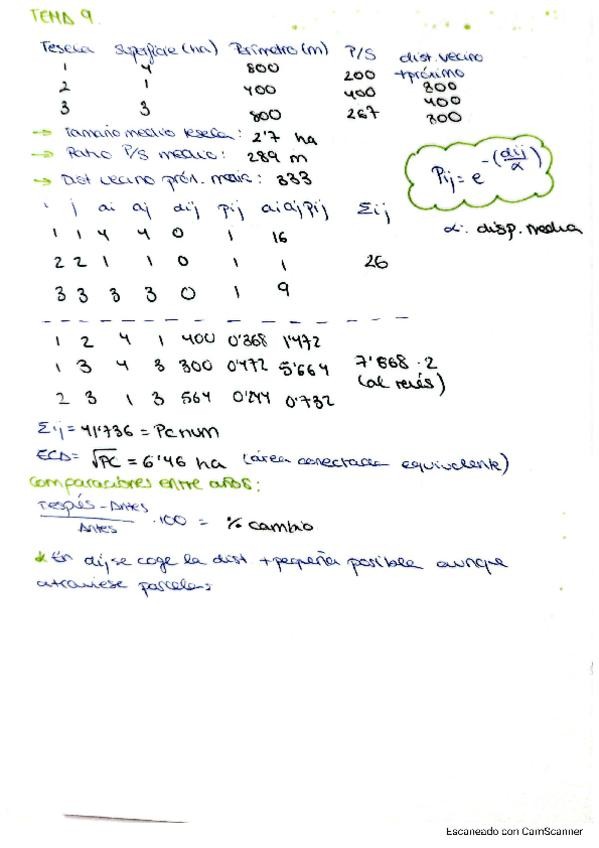 TEMA 9.
Tesela superficie (ha) Perímetro (m) P/S dist. vecino + próximo
1 4 800 200 300
2 1 400 400 400
3 3 800 267 300
→ Tamaño medio tesela: 2'7 ha
→ Ratio P/S medio: 289 m
→ Dist vecino próx. medio: 333
Pij = e^-(dij/α)
α: disp. media
i j ai aj dij pij aiajpij Σij
1 1 4 4 0 1 16
2 2 1 1 0 1 1 26
3 3 3 3 0 1 9
1 2 4 1 400 0'368 1'472
1 3 4 3 300 0'472 5'664 7'868 · 2
2 3 1 3 564 0'244 0'732 (al revés)
Σij = 41'736 = PCnum
ECA = √PC = 6'46 ha (área conectada equivalente)
Comparaciones entre años:
Después - Antes / Antes · 100 = % cambio
* En dij se coge la dist + pequeña posible aunque
atraviese parcelas
Escaneado con CamScanner